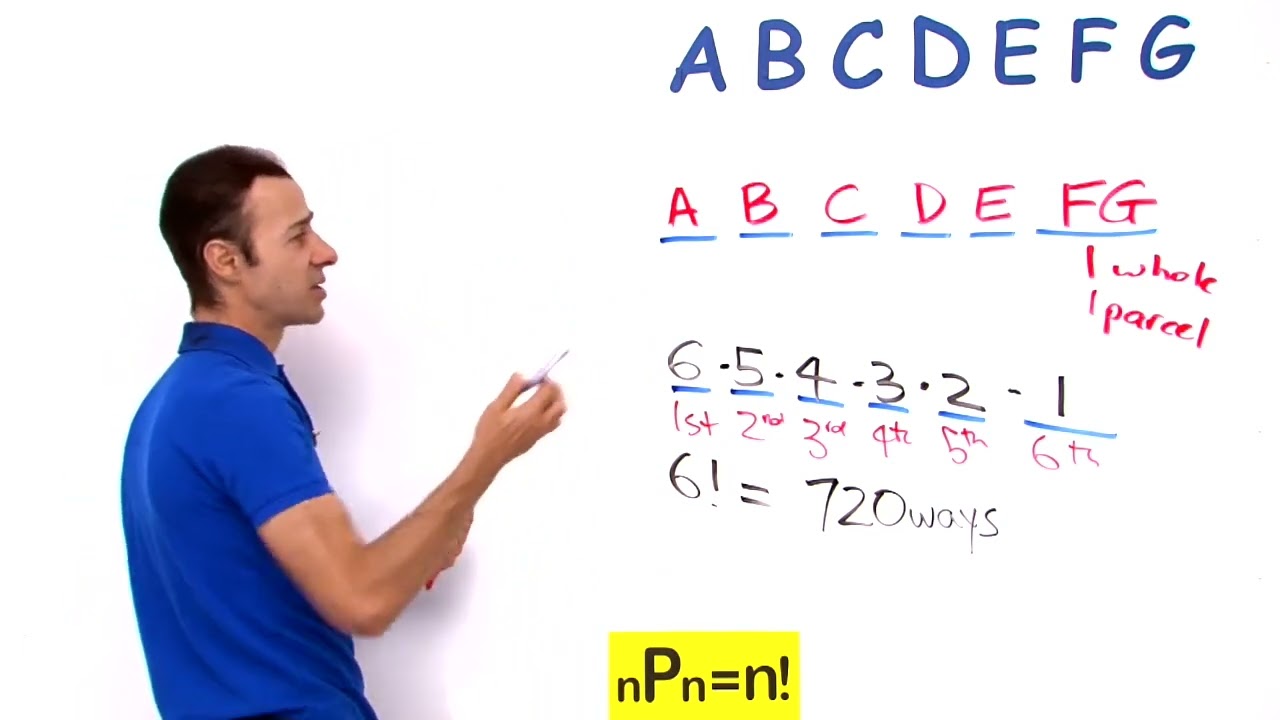 A B C D E F G
A B C D E FG
1 whole
1 parcel
6 · 5 · 4 · 3 · 2 - 1
1st 2nd 3rd 4th 5th 6th
6! = 720 ways
nPn=n!